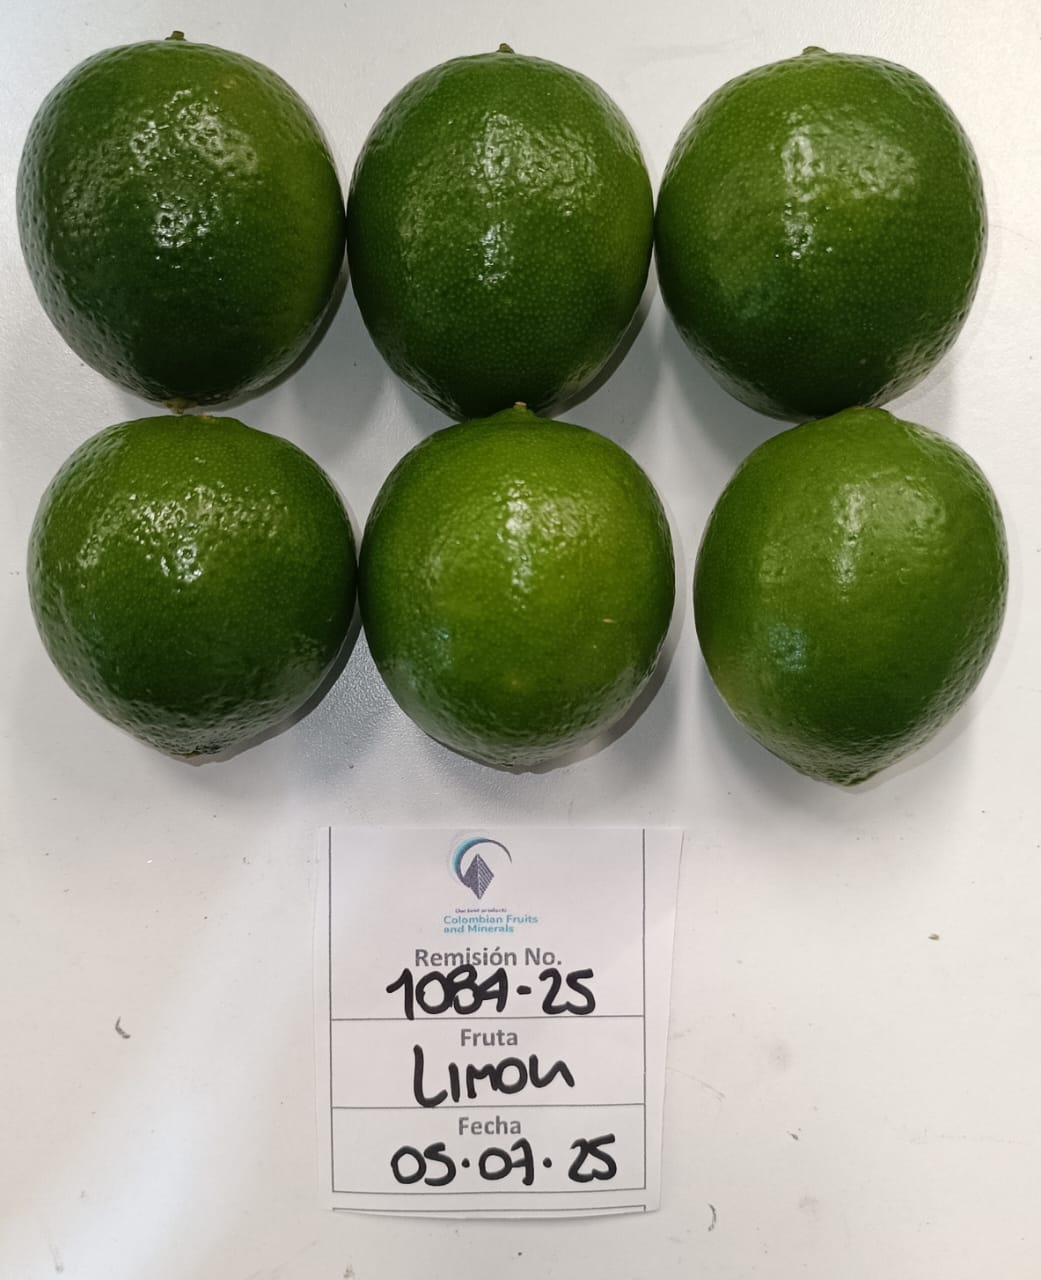 Our best products
Colombian Fruits
and Minerals
Remisión No.
1084-25
Fruta
Limon
Fecha
05.07.25